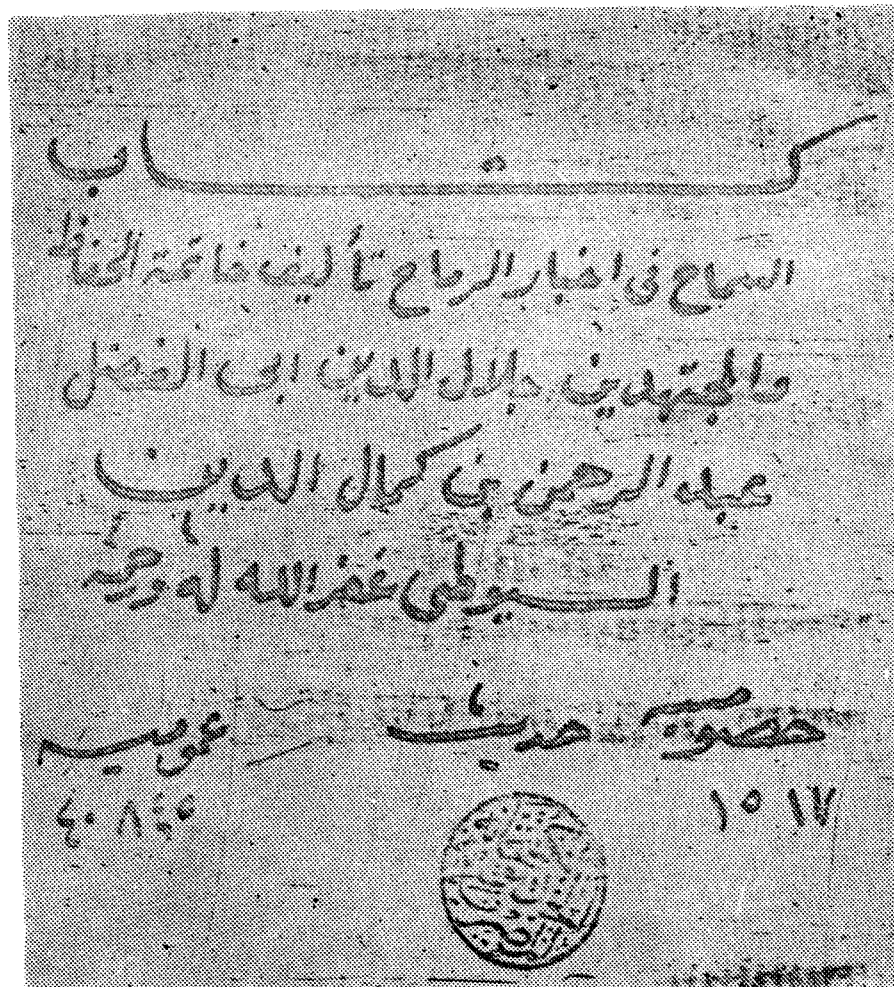 كتاب
السماح في اخبار الرماح تأليف خاتمة الحفاظ
والمجتهدين جلال الدين ابى الفضل
عبد الرحمن بن كمال الدين
السيوطى غفر الله له ورحمه
خصوصية حديث عمومية